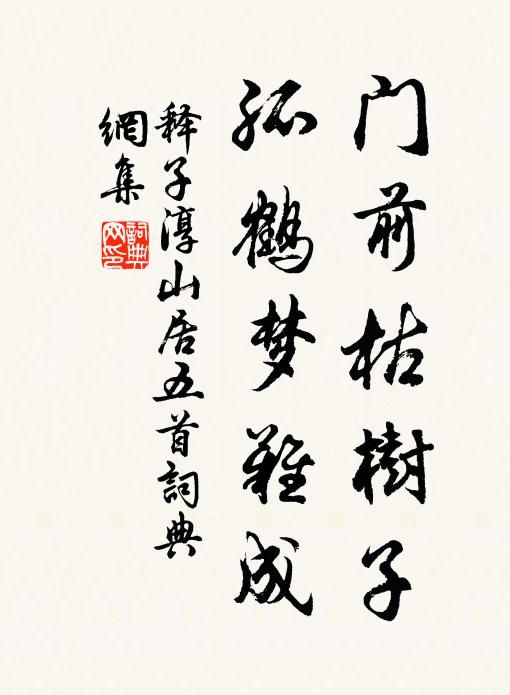 门前枯樹子
孤鹤梦難成
释子淳山居五首詞典
網集
詞典
网印